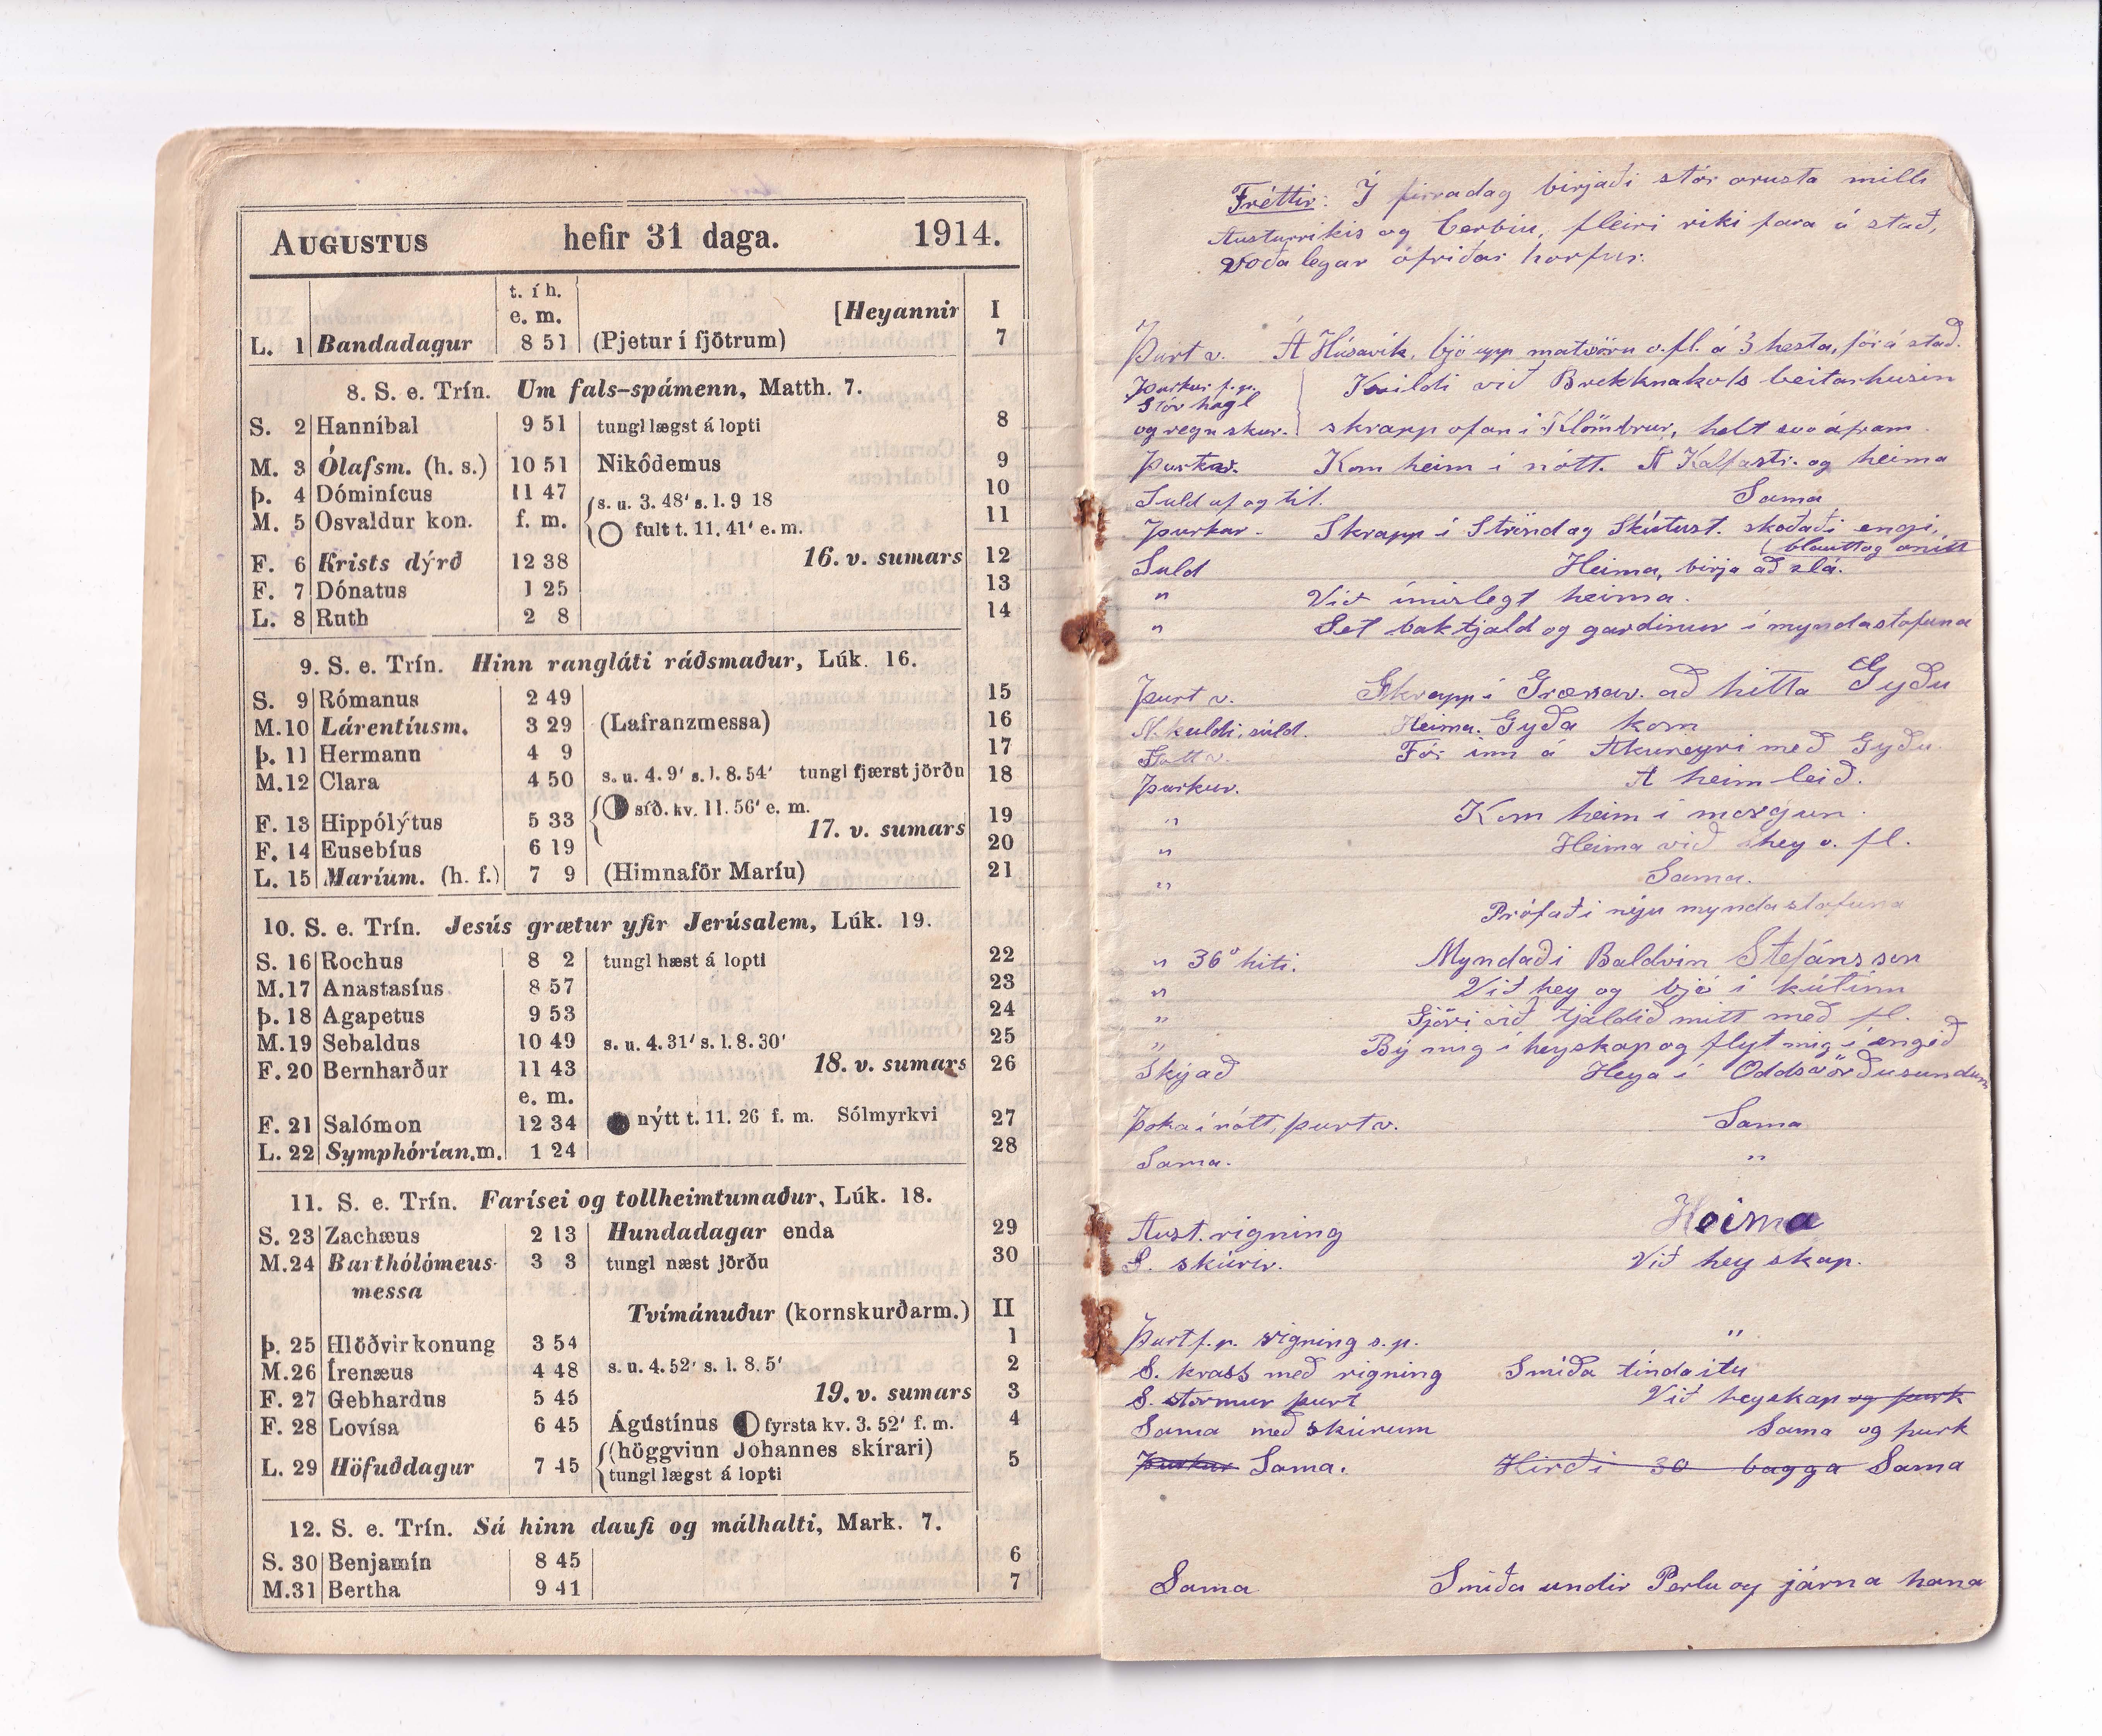 AUGUSTUS hefir 31 daga. 1914.
t. í h.
e. m. [Heyannir I
L. 1 Bandadagur 8 51 (Pjetur í fjötrum) 7
8. S. e. Trín. Um fals-spámenn, Matth. 7.
S. 2 Hanníbal 9 51 tungl lægst á lopti 8
M. 3 Ólafsm. (h. s.) 10 51 Nikódemus 9
Þ. 4 Dóminícus 11 47 s. u. 3. 48' s. l. 9 18 10
M. 5 Osvaldur kon. f. m. fult t. 11. 41' e. m. 11
F. 6 Krists dýrð 12 38 16. v. sumars 12
F. 7 Dónatus 1 25 13
L. 8 Ruth 2 8 14
9. S. e. Trín. Hinn rangláti ráðsmaður, Lúk. 16.
S. 9 Rómanus 2 49 15
M. 10 Lárentíusm. 3 29 (Lafranzmessa) 16
Þ. 11 Hermann 4 9 17
M. 12 Clara 4 50 s. u. 4. 9' s. l. 8. 54' tungl fjærst jörðu 18
F. 13 Hippólýtus 5 33 síð. kv. 11. 56' e. m. 17. v. sumars 19
F. 14 Eusebíus 6 19 20
L. 15 Maríum. (h. f.) 7 9 (Himnaför Maríu) 21
10. S. e. Trín. Jesús grætur yfir Jerúsalem, Lúk. 19.
S. 16 Rochus 8 2 tungl hæst á lopti 22
M. 17 Anastasíus 8 57 23
Þ. 18 Agapetus 9 53 24
M. 19 Sebaldus 10 49 s. u. 4. 31' s. l. 8. 30' 25
F. 20 Bernharður 11 43 18. v. sumars 26
e. m.
F. 21 Salómon 12 34 nýtt t. 11. 26 f. m. Sólmyrkvi 27
L. 22 Symphórían.m. 1 24 28
11. S. e. Trín. Farísei og tollheimtumaður, Lúk. 18.
S. 23 Zachæus 2 13 Hundadagar enda 29
M. 24 Barthólómeus- 3 3 tungl næst jörðu 30
messa
Tvímánuður (kornskurðarm.) II
Þ. 25 Hlöðvir konung 3 54 1
M. 26 Írenæus 4 48 s. u. 4. 52' s. l. 8. 5' 2
F. 27 Gebhardus 5 45 19. v. sumars 3
F. 28 Lovísa 6 45 Ágústínus fyrsta kv. 3. 52' f. m. 4
L. 29 Höfuðdagur 7 45 (höggvinn Jóhannes skírari) 5
tungl lægst á lopti
12. S. e. Trín. Sá hinn daufi og málhalti, Mark. 7.
S. 30 Benjamín 8 45 6
M. 31 Bertha 9 41 7
Fréttir: Í firradag birjaði stór orusta milli
Austurrikis og Serbiu, fleiri riki fara á stað,
Voðalegar ófriðar horfur.
Þurt v. Á Húsavík, bjó upp matvöru o. fl. á 3 hesta, fór á stað.
Þurkur f. p. Kvildi við Brekknakots beitarhúsin
Stór hagl
og regnskur. skrapp ofan í Klömbrur, helt svo áfram
Þurkur. Kom heim í nótt. Á Kalfastr. og heima
Suld af og til. Sama
Þurkur. Skrapp í Strönd og Skútust. skoðaði engi,
blautt og ónítt
Suld Heima, birja að slá.
" Við ímislegt heima.
" Set baktjald og gardinur í myndastofuna
Þurt v. Skrapp í Grænav. að hitta Gyðu
N. kuldi, suld. Heima. Gyða kom
Fór inn á Akureyri með Gyðu
Þurkur. Á heimleið.
" Kom heim í morgun.
" Heima við hey o. fl.
" Sama.
Prófaði nýju myndastofuna
" 36° hiti. Myndaði Baldvin Stefánsson
" Við hey og bjó í kútinn
" Gjöri við tjaldið mitt með fl.
" Bý mig í heyskap og flyt mig í engið
Skýjað Heya í Oddsvörðusundum
Þoka í nótt, þurt v. Sama
Sama. "
Aust. rigning Heima
S. skúrir. Við heyskap.
Þurt f. p. rigning s. p. "
S. krass með rigning Smíða tindaitu
S. stormur þurt Við heyskap og þurk
Sama með skúrum Sama og þurk
Þurkur Sama. Hirði 30 bagga Sama
Sama Smíða undir Perlu og járna hana